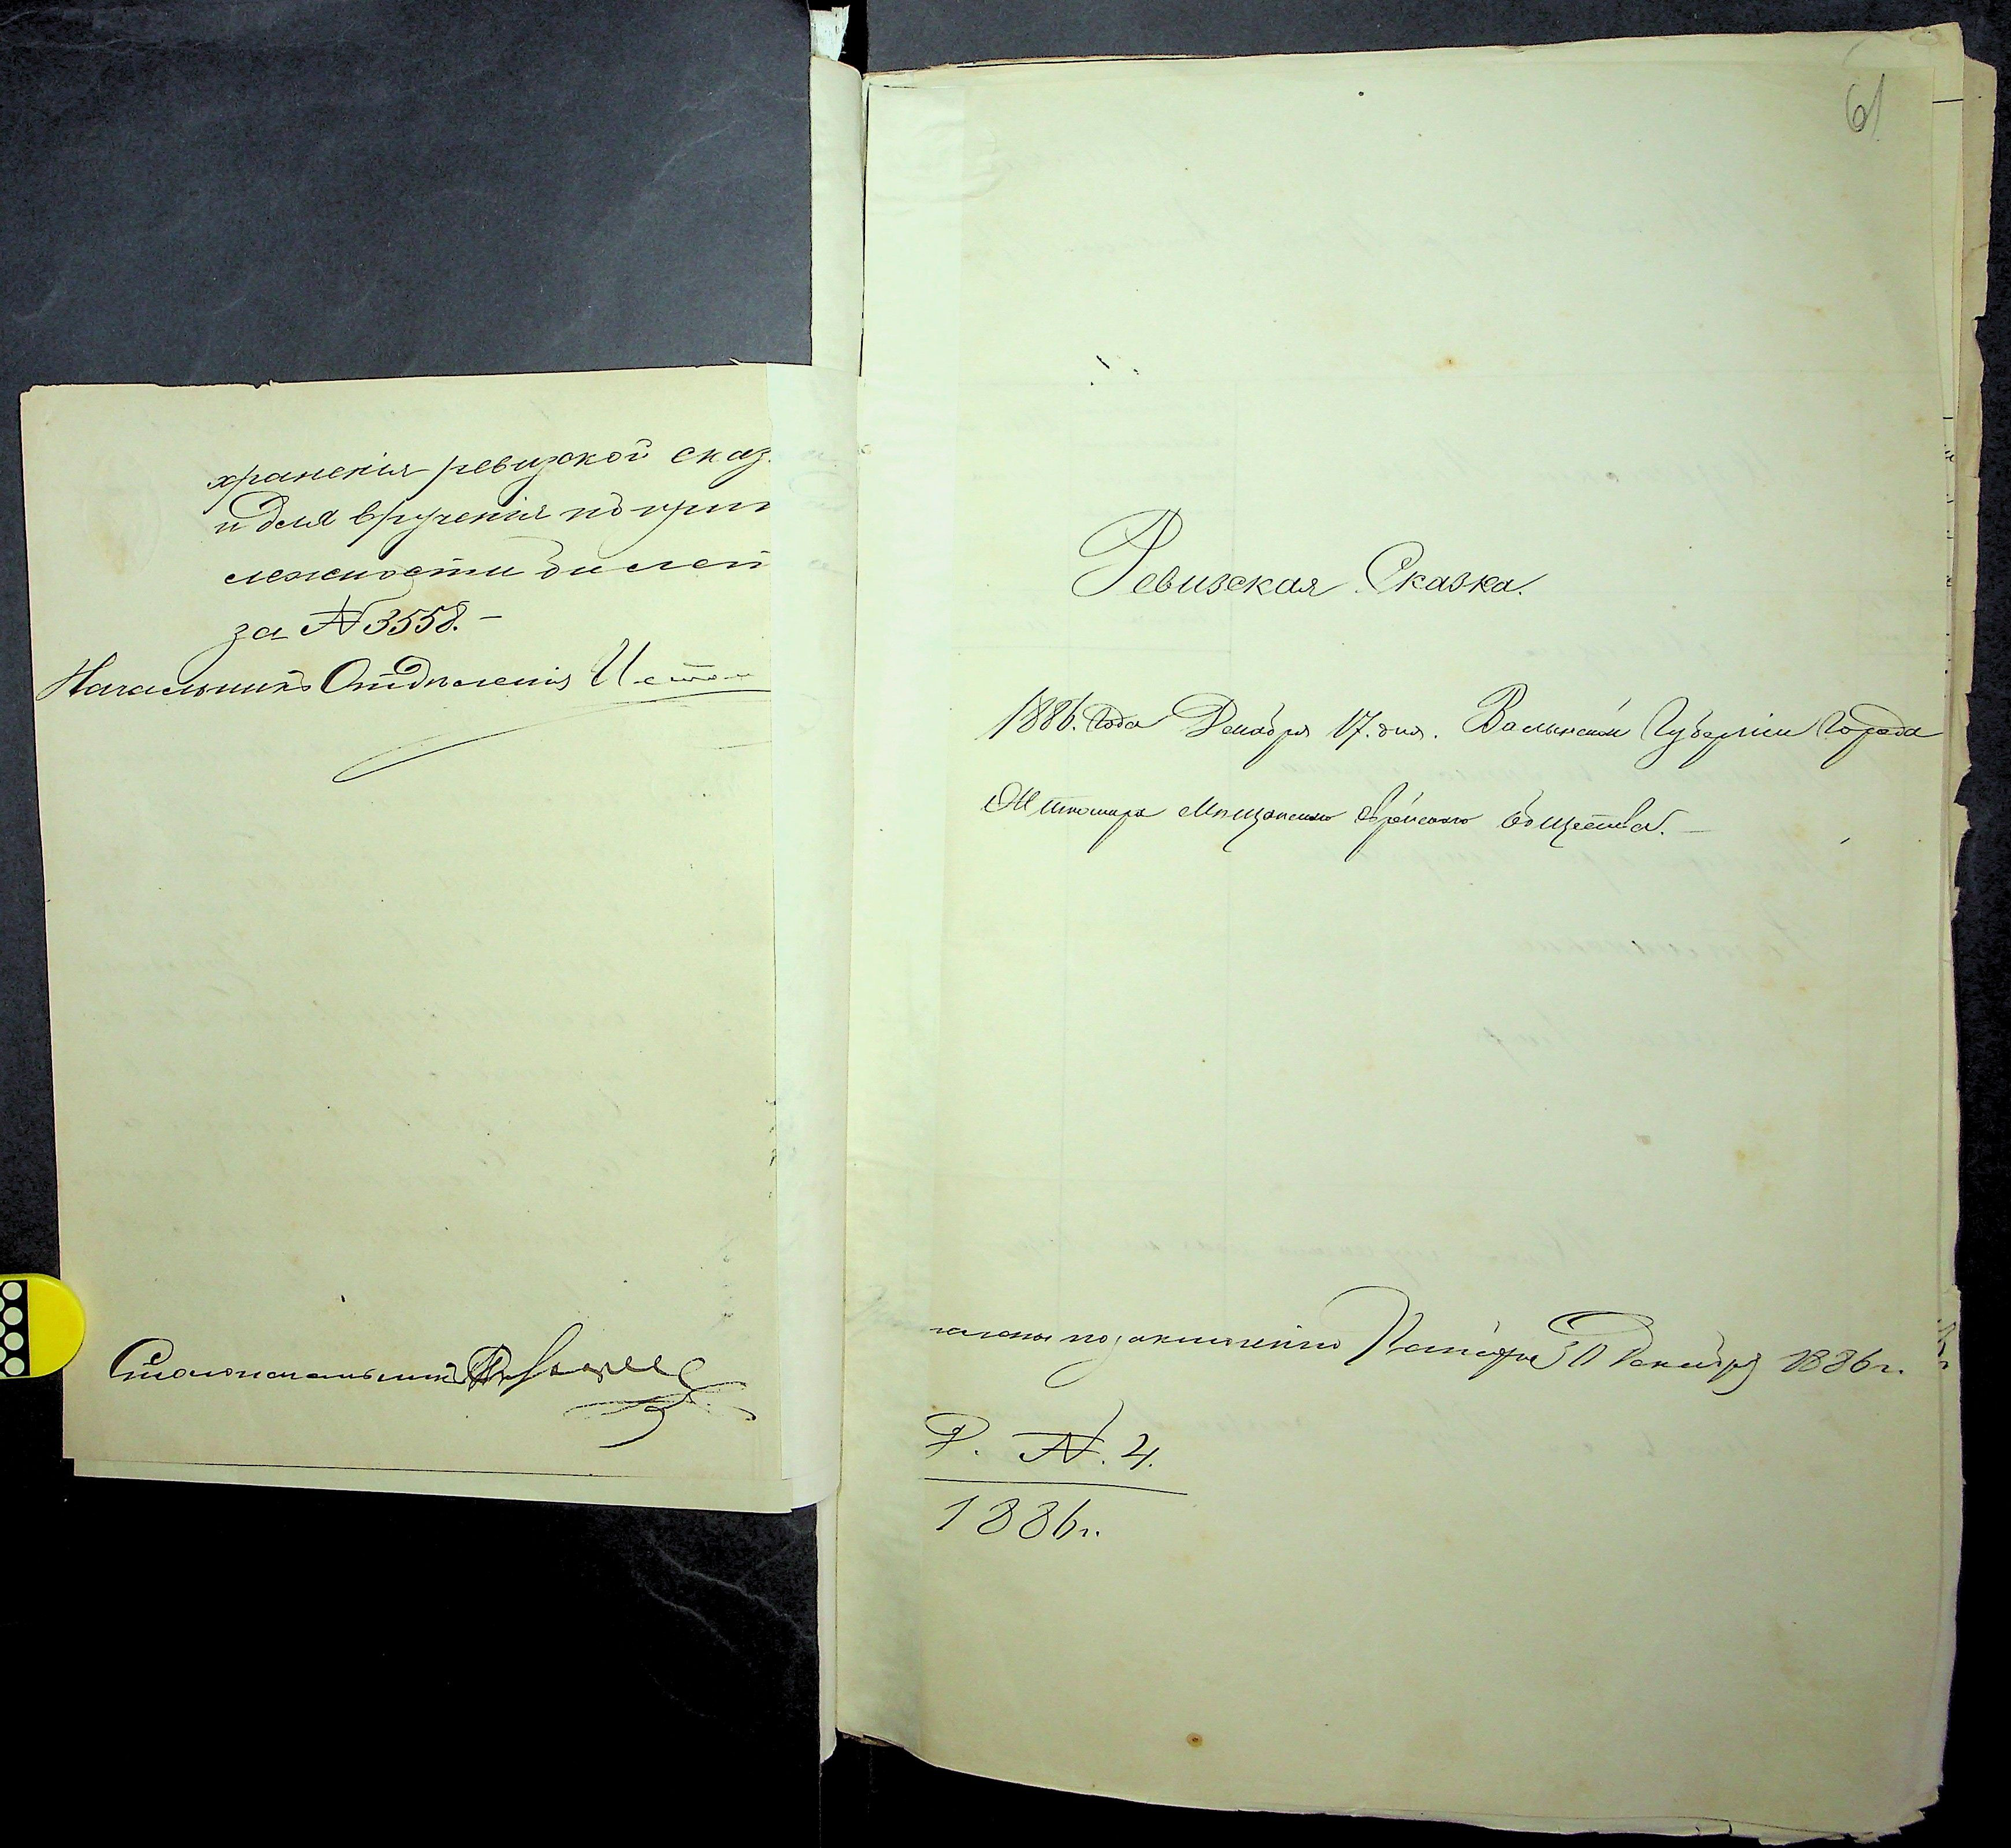 храненія ревизской сказ
и для врученія по прин
лежности билет
за № 3558. –
Начальникъ Отдѣленія
Столоначальникъ
61
Ревизская Сказка.
1886. Года Декабря 17. дня. Волынской Губерніи Города
Житомира Мѣщанскаго Еврейскаго Общества. –
по заключенію Палаты Декабря 1886 г.
Р. №. 4.
1886 г.